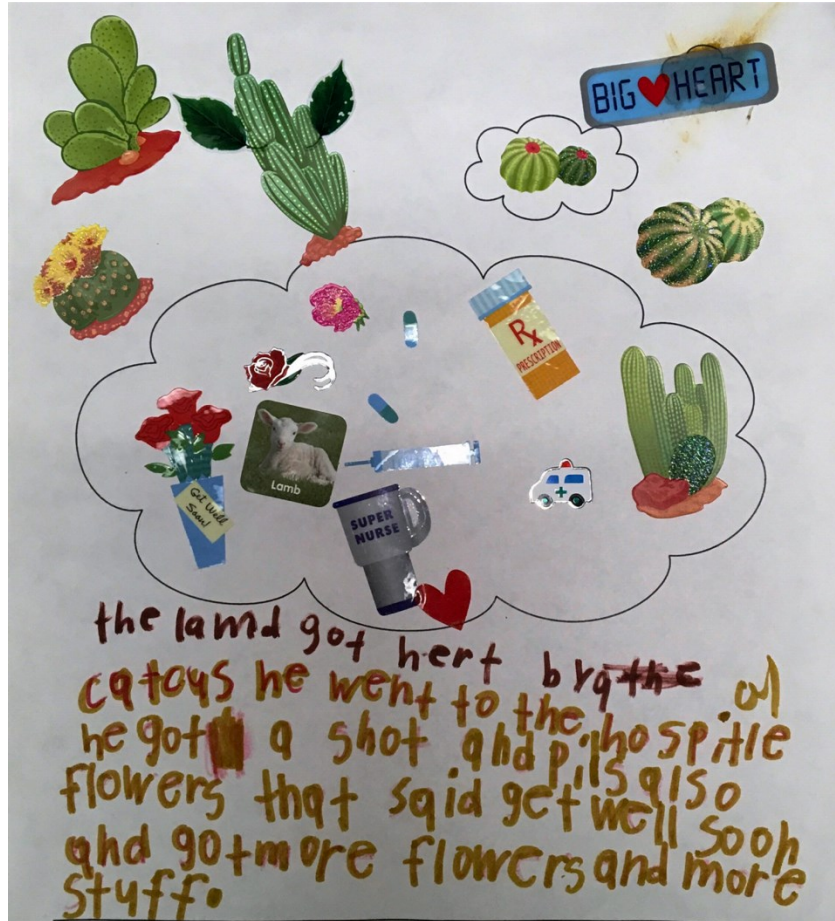 BIG HEART
Rx
PRESCRIPTION
Get Well
Soon!
Lamb
SUPER
NURSE
the lamd got hert by a
catcus he went to the hospitle
he got a shot and pils also
flowers that said get well soon
and got more flowers and more
stuff.